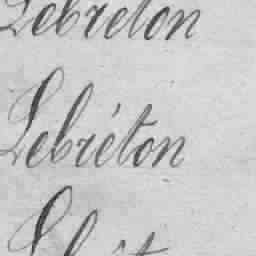 Lebreton
Lebréton